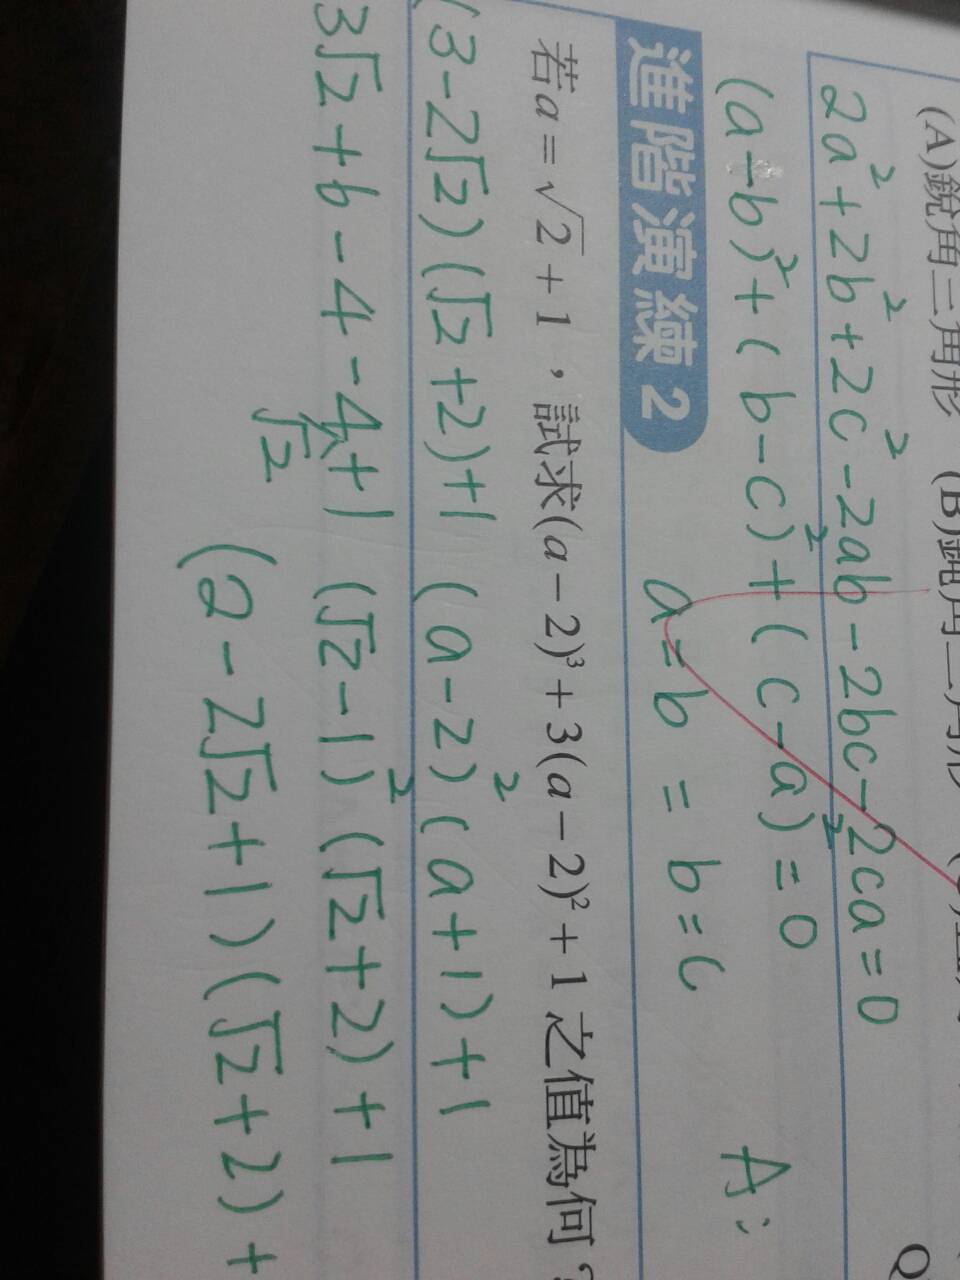 (A)銳角三角形 (B)鈍角三角形
2a²+2b²+2c²-2ab-2bc-2ca=0
(a-b)²+(b-c)²+(c-a)²=0
a=b=b=c A:
進階演練 2
若a=√2+1,試求(a-2)³+3(a-2)²+1之值為何?
(3-2√2)(√2+2)+1 (a-2)²(a+1)+1
3√2+6-4-4√2+1 (√2-1)²(√2+2)+1
(2-2√2+1)(√2+2)+